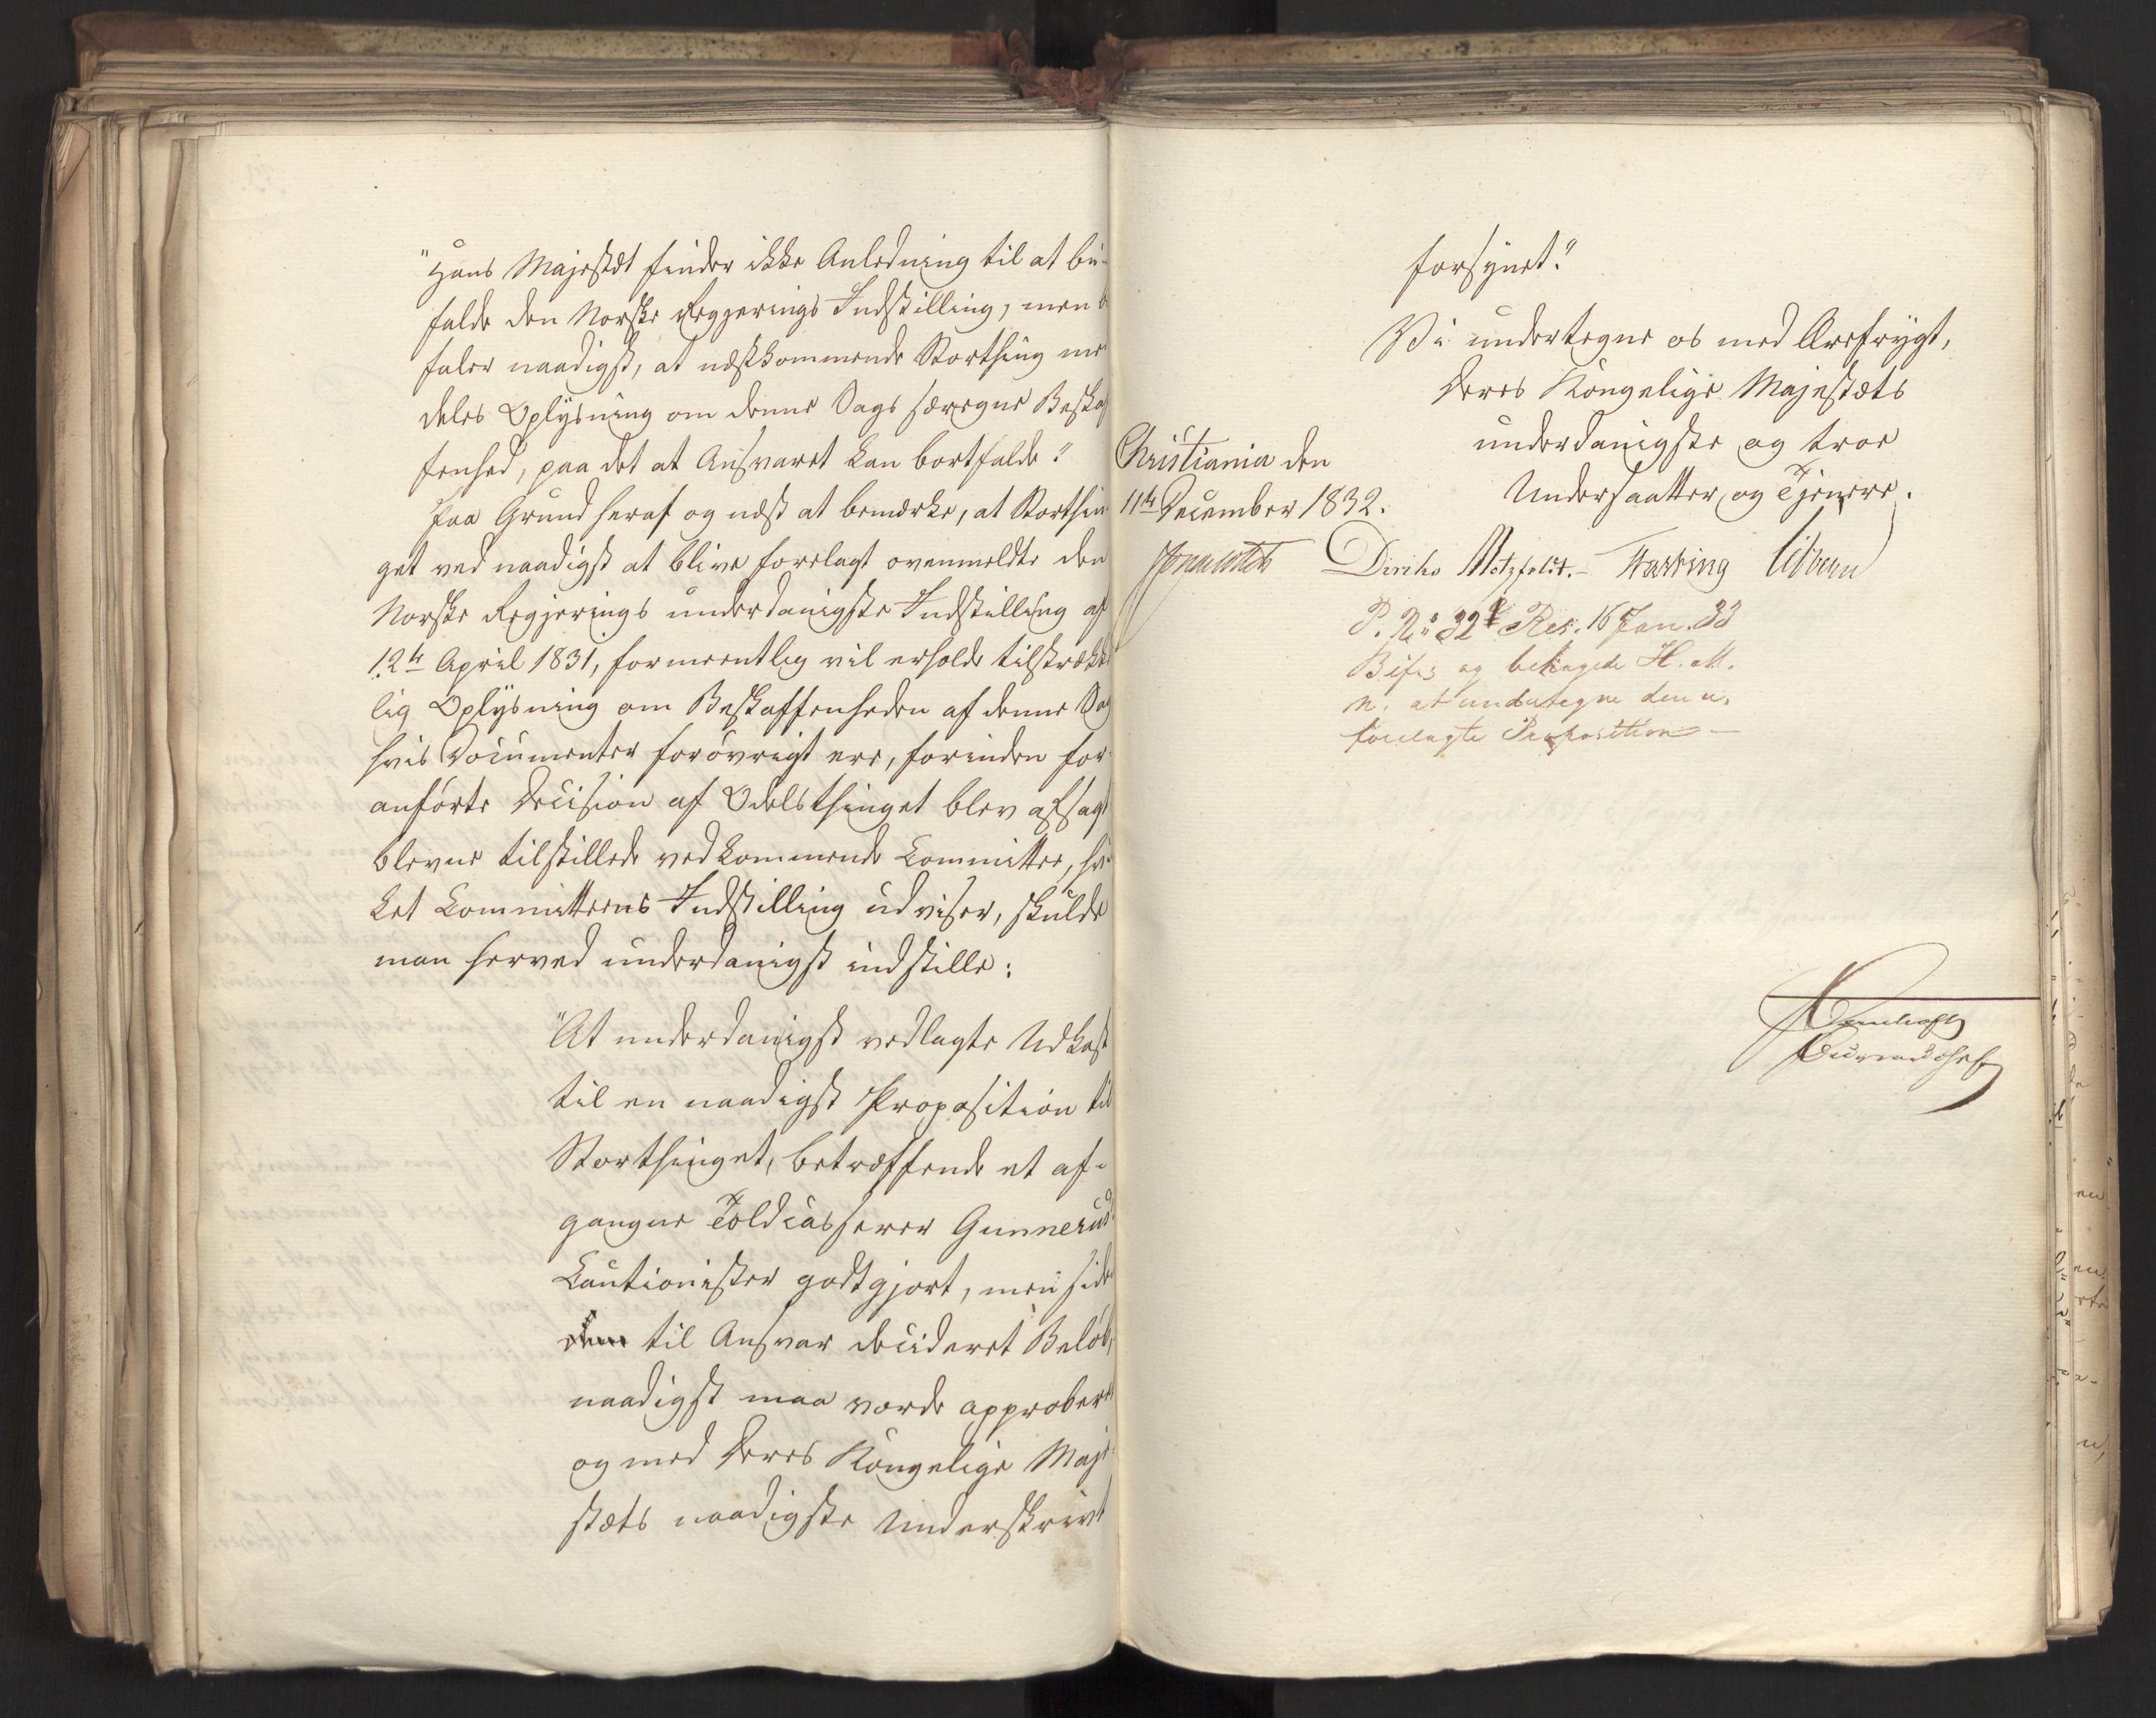 "Hans Majestæt finder ikke Anledning til at bi-
falde den Norske Regjerings Indstilling, men be
faler naadigst, at næstkommende Storthing med
deles Oplysning om denne Sags særegne Beskaf
fenhed, paa det at Ansvaret kan bortfalde."
Paa Grund heraf og næst at bemærke, at Storthin
get ved naadigst at blive forelagt ovenmeldte den
Norske Regjerings underdanigste Indstilling af
12te April 1831, formeentlig vil erholde tilstrække
lig Oplysning om Beskaffenheden af denne Sag
hvis Documenter forövrigt ere, forinden for-
anförte Decision af Odelsthinget blev afsagt
blevne tilstillede vedkommende Committee, hvil
ket Committeens Indstilling udviser, skulde
man herved underdanigst indstille:
"At underdanigst vedlagte Udkast
til en naadigst Proposition til
Storthinget, betræffende et af-
gangne Toldcasserer Gunnerus's
Cautionister godtgjort, men siden
til Ansvar decideret Belöb,
naadigst maa vorde approberet
og med Deres Kongelige Maje-
stæts naadigste Underskrivt
forsynet."
Vi undertegne os med Ærefrygt,
Deres Kongelige Majestæts
underdanigste og troe
Undersaatter og Tjenere.
Christiania den
11te December 1832.
Diriks Motzfeldt. Fasting
P. No 32 Res. 16 Jan. 33
Bifs og behagede H. M.
n. at undertegne den u.
forelagte Proposition